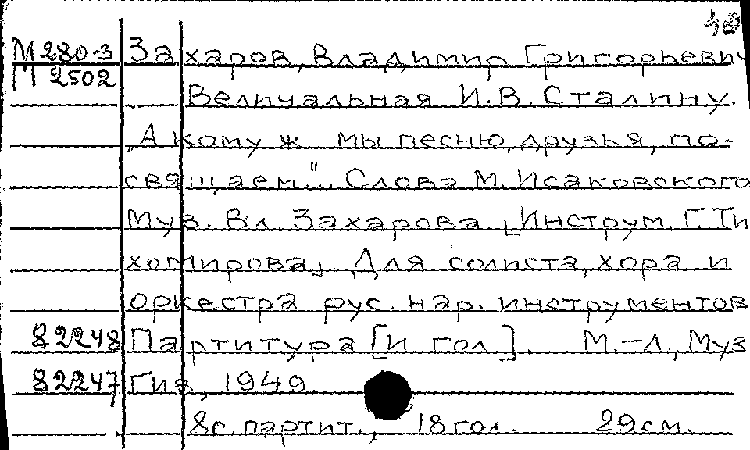 М 280-3 Захаров, Владимир Григорьевич
М 2502
Величальная И.В. Сталину.
„А кому ж мы песню, друзья, по-
свящаем"... Слова М. Исаковского
Муз. Вл. Захарова. [Инструм. Г. Ти
хомирова] Для солиста, хора и
оркестра рус. нар. инструментов
82248 Партитура [и гол.]. М.-Л., Муз
82247 Гиз, 1949.
8с. партит., 18 гол. 29 см.